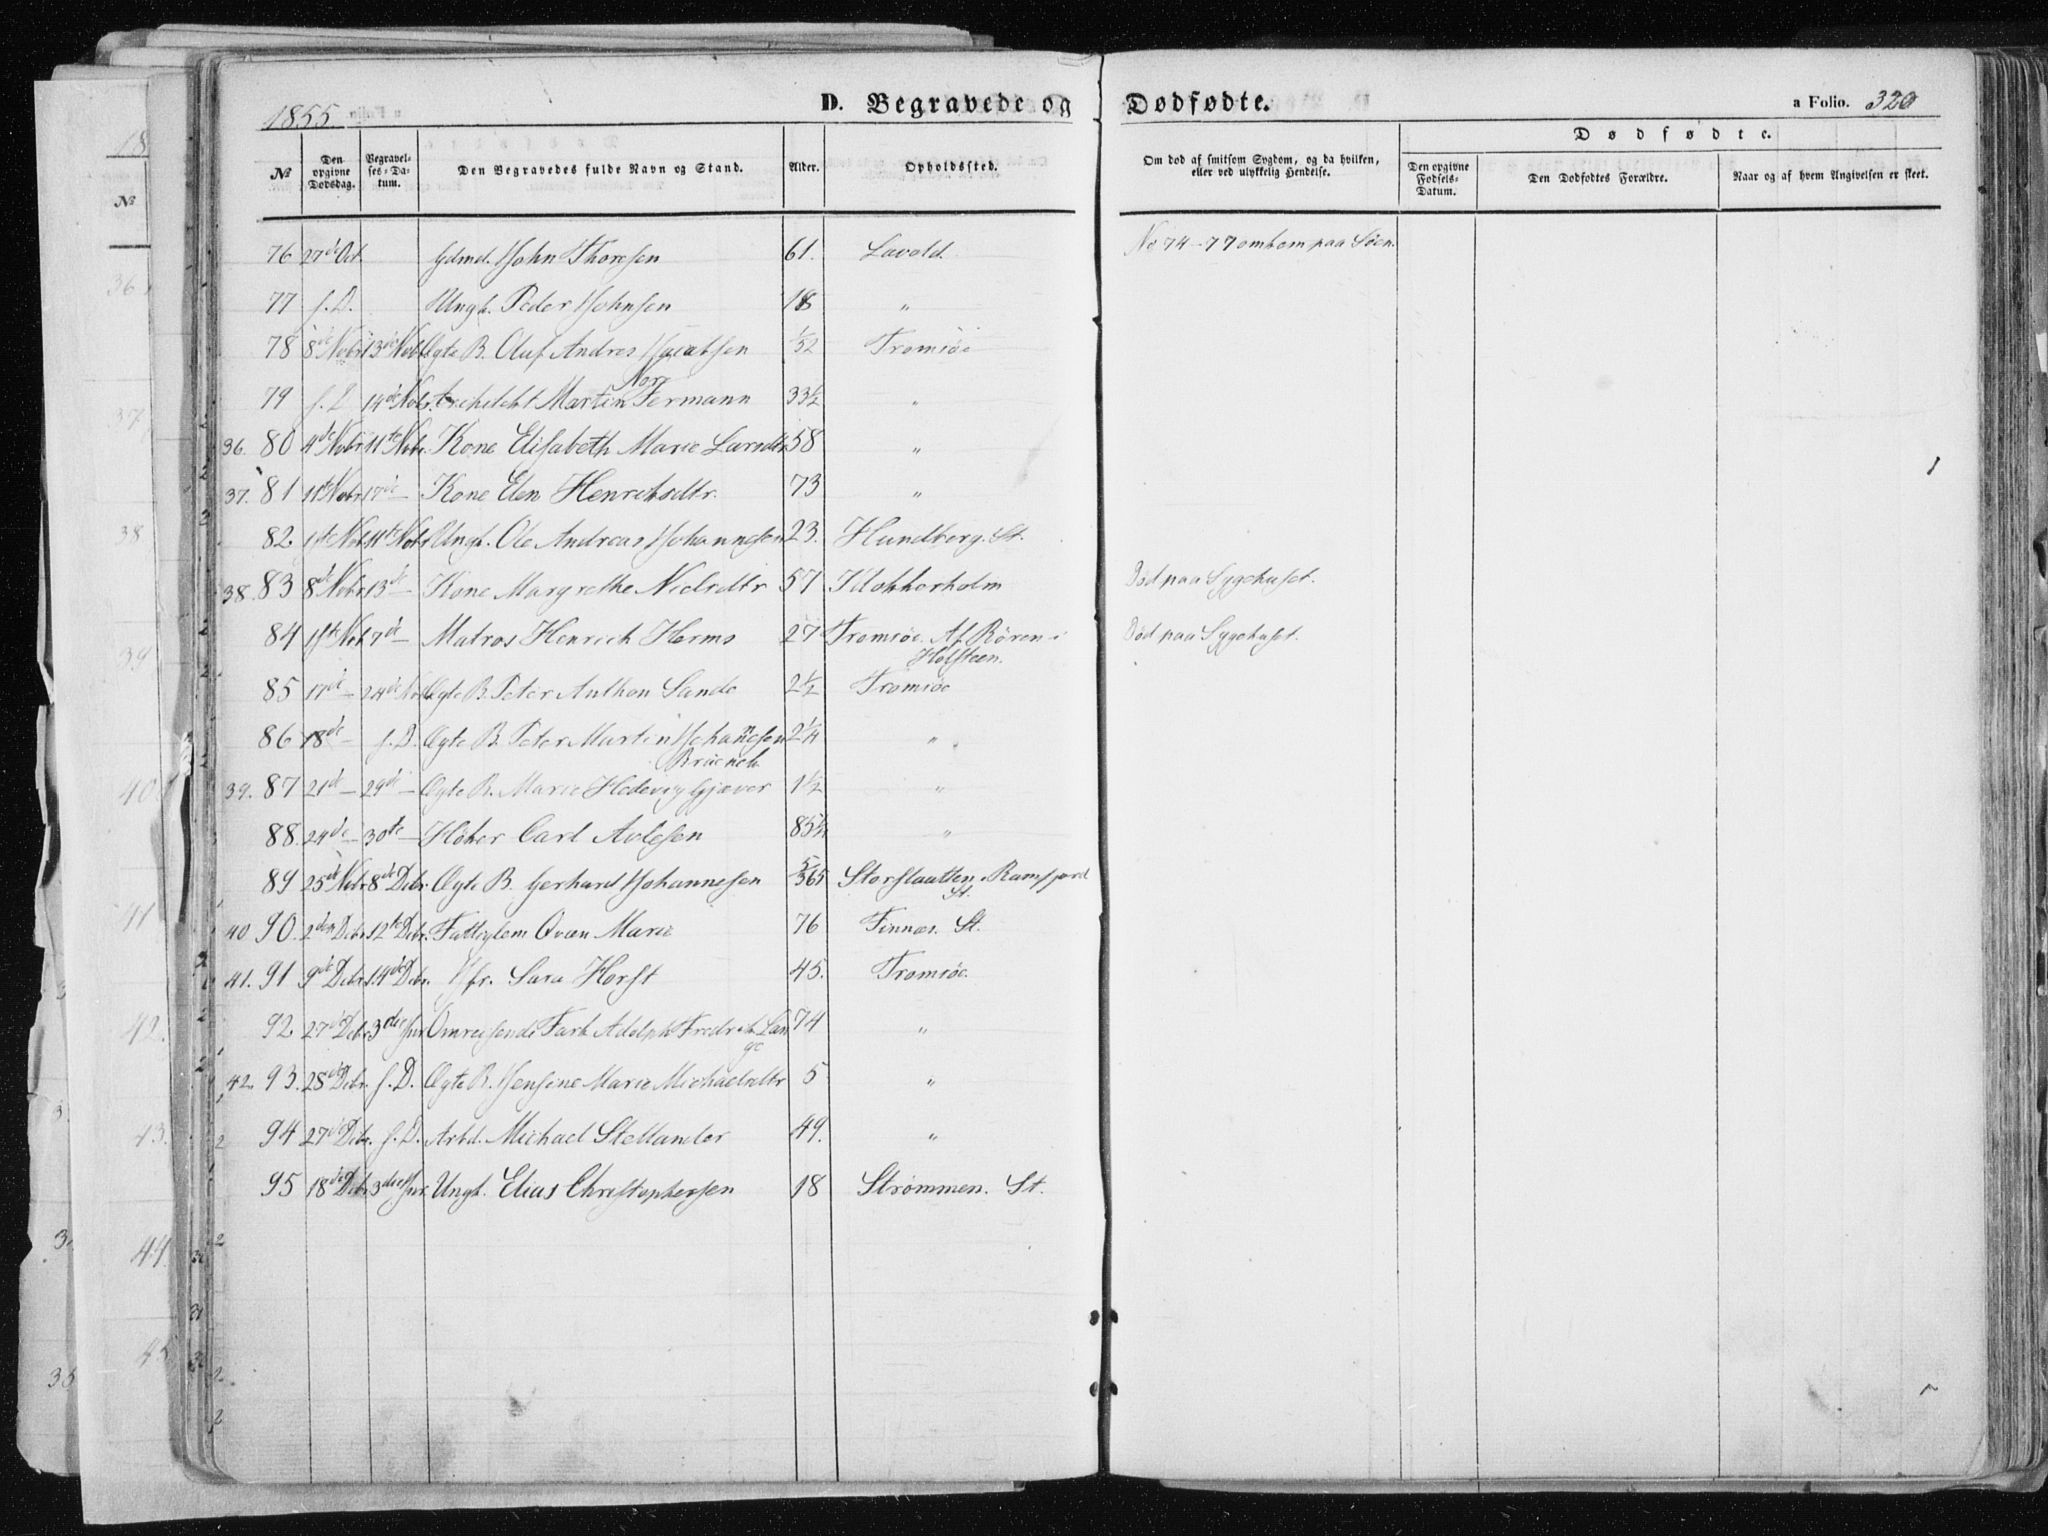 1855. D. Begravede og Dødfødte. a Folio. 320
Dødfødte.
№ Den opgivne Dødsdag. Begravelses-Datum. Den Begravedes fulde Navn og Stand. Alder. Opholdssted. Om død af smitsom Sygdom, og da hvilken, eller ved ulykkelig Hendelse. Den opgivne Fødsels-Datum. Den Dødfødtes Forældre. Naar og af hvem Angivelsen er skeet.
76 27de Oct. Gdmd. John Thoresen 61. Lavold. No 74-77 omkom paa Søen.
77 s. D. Ungk. Peder Johnsen 18 "
78 8de Novbr 13de Novbr Ægte B. Oluf Andres Jacobsen 1/52 Tromsøe
79 s. D. 14de Novbr. Architekt Martin Nor Fermann 33½ "
36. 80 4de Novbr 11te Novbr. Kone Elisabeth Marie Larsdtr 58 "
37. 81 11te Novbr 17de — Kone Elen Henriksdtr. 73 "
82. 1ste Nov 11te Novbr Ungk. Ole Andreas Johannesen 23. Hundberg. St.
38. 83 8de Novbr 13de — Kone Margrethe Nielsdtr 57 Klokkerholm Død paa Sygehuset.
84 1ste Nov 7de — Matros Henrich Herms 27 Tromsøe. Af Rören i
Holsteen. Død paa Sygehuset.
85 17de — 24de Nov Ægte B. Peter Anthon Sande 2½ Tromsøe
86 18de — s. D. Ægte B. Peter Martin Johannesen 2¼ "
39. 87 21de — 29de — Ægte B. Marie Hedevig Gjæver 1½ "
88. 24de — 30te — Høker Carl Avlesen 85½ "
89 25de Novbr 8de Debr. Ægte B. Gerhard Johannesen 5/365 Storslaatten i Ramfjord
St.
40 90. 2den Debr. 12te Debr. Fattiglem Qvæn Marie 76 Finnæs. St.
41. 91 9de Debr. 14de Debr. Jfr. Sara Horst 45. Tromsøe.
92 27de Debr. 3die Jnr. Omreisende Tark Adolph Fredrik Lan
ge 74 "
42. 93. 28de Debr. s. D. Ægte B. Hensine Marie Michaelsdtr 5 "
94 27de Debr. s. D. Arbd. Michael Stellander 49. "
95 18de Debr. 3die Jnr. Ungk. Elias Christophersen 18 Strømmen. St.